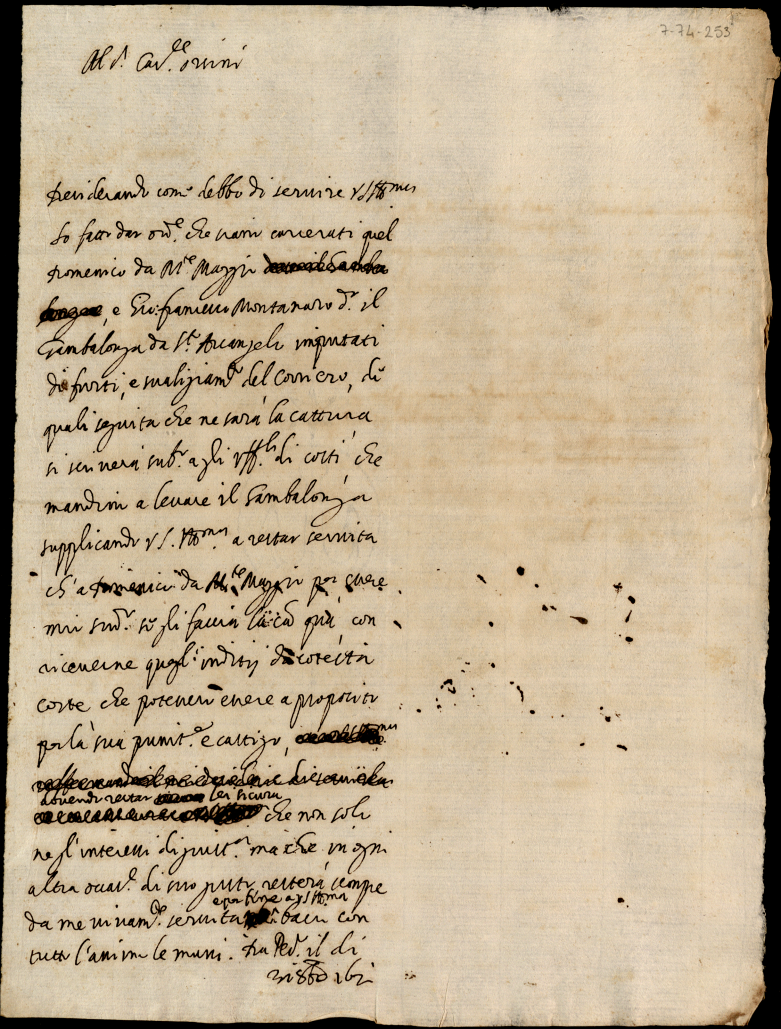 7-74-253
Al s.r Card.le Orsini
Desiderando com'e debbo di servire VS Ill.ma
Ho fatto dar ord.e che siano carcerati quel
Domenico da M.te Maggio
e Gio: Francesco Montanaro d.o il
Gambalonga da S.t Arcangelo imputati
di furti, e svaligiam.to del Corriero, de
quali seguita che ne sarà la cattura
si scriverà sub.o agli Uff.li di costì che
mandino a levare il Gambalonga
supplicando VS. Ill.ma a restar servita
ch'a Domenico da M.te Maggio per essere
mio sud.o se gli faccia la cã quà, con
riceverne quegl'inditij da cotesta
corte che potessero essere a proposito
per la sua punit.e e castigo,
dovendo restar lei sicura
che non solo
negl'interessi di giust.a ma che in ogni
altra occas.e di suo gusto resterà sempre
da me vivam.te servita e per fine a VS Ill.ma bacio con
tutto l'animo le mani. Da Pes.o il di